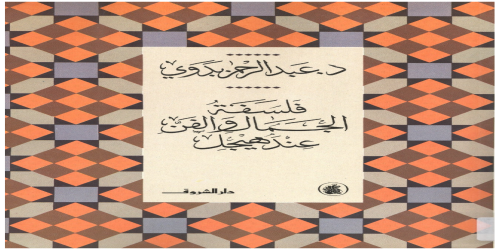 د. عبدالرحمن بدوي
فلسفة
الجمال والفن
عند هيجل
دار الشروق